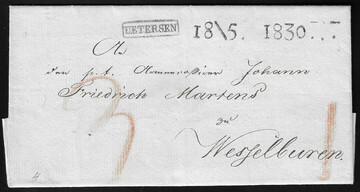 UETERSEN 18\5. 1830...
An
den p.t. Commissionair Johann
Friedrich Martens
zu
Wesselburen.
3 1
4